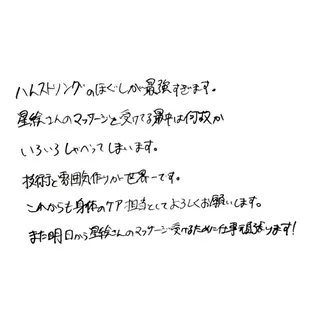 ハムストリングのほぐしが最強すぎます。
星絵さんのマッサージを受けてる最中は何故か
いろいろしゃべってしまいます。
技術と雰囲気作りが世界一です。
これからも身体のケア担当としてよろしくお願いします。
また明日から星絵さんのマッサージ受けるために仕事頑張ります!